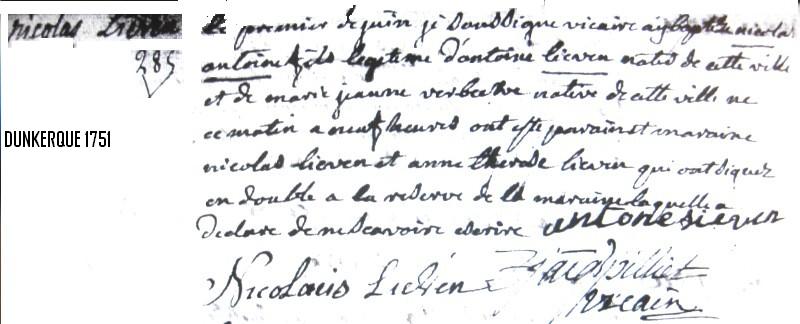 nicolas Lieven
285
DUNKERQUE 1751
le premier de juin je soussigne vicaire ay baptise nicolas
antoine fils legitime d'antoine lieven natif de cette ville
et de marie jeanne native de cette ville ne
ce matin a neuf heures ont este parain et maraine
nicolas lieven et anne therese lievin qui ont signez
en double a la reserve de la maraine laquelle a
declare de ne scavoire escrire antone sieven
Nicolais Lieven
vicair